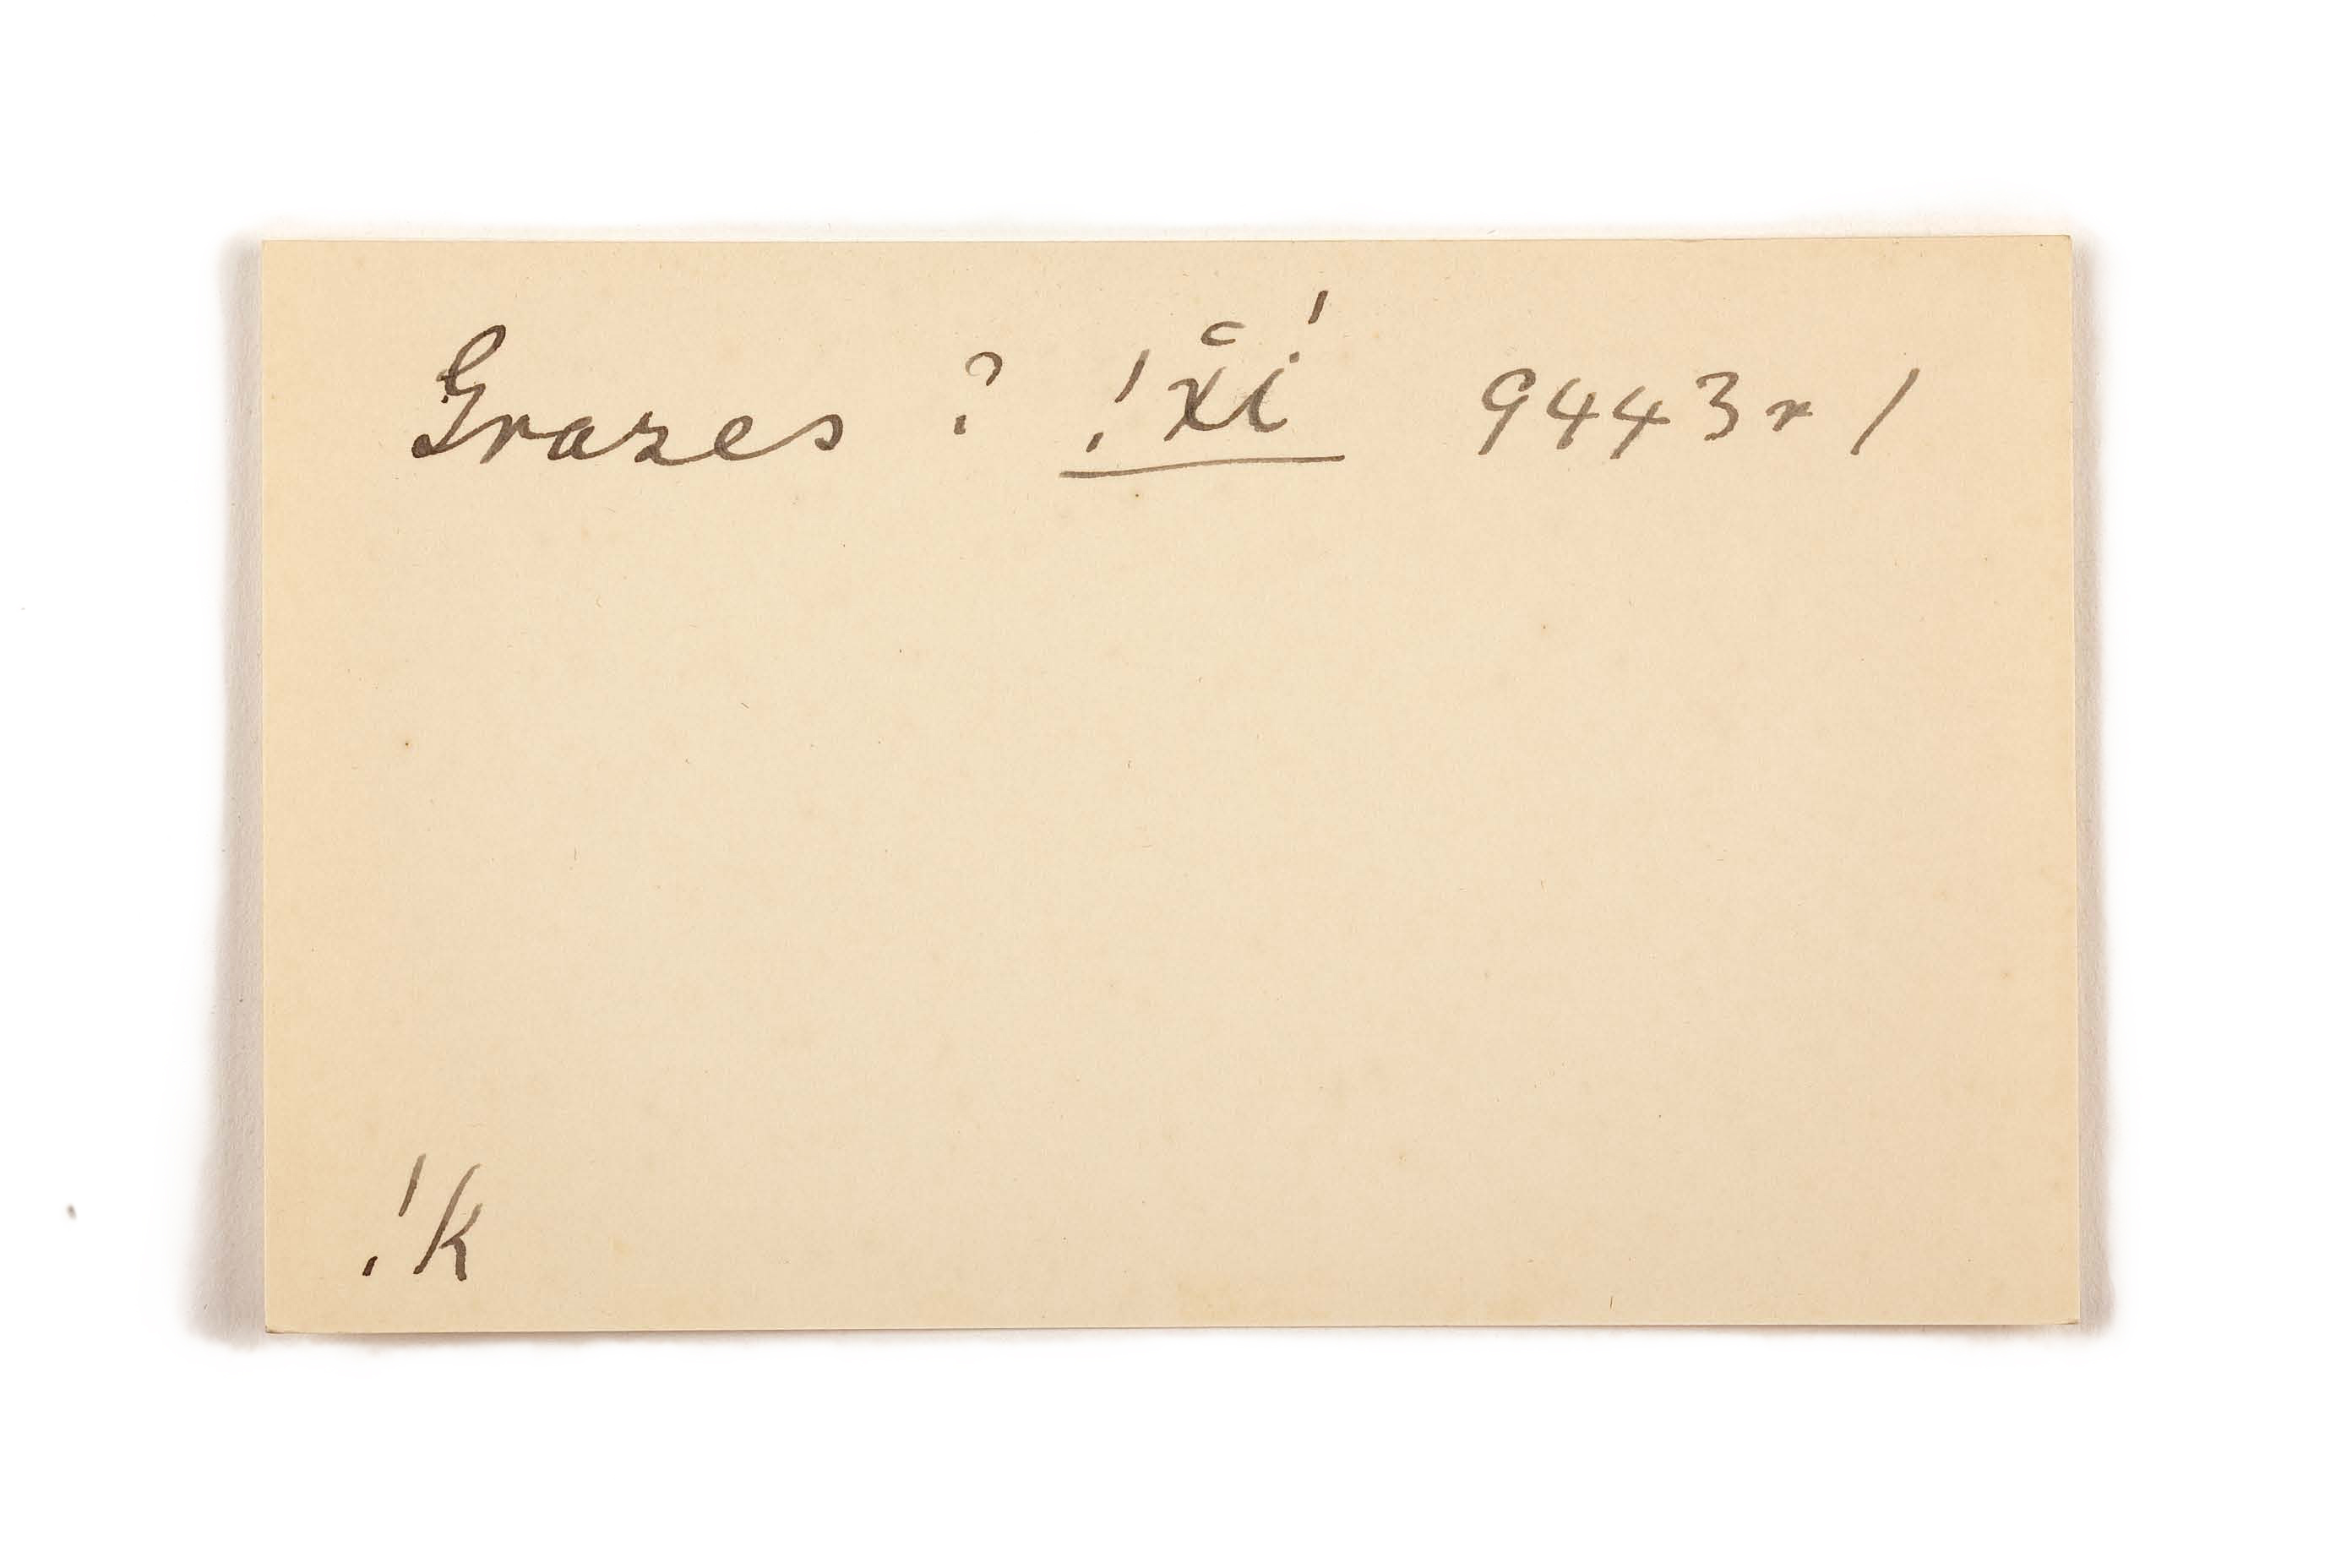 Grazes ? !x̆í 9443r /
!k